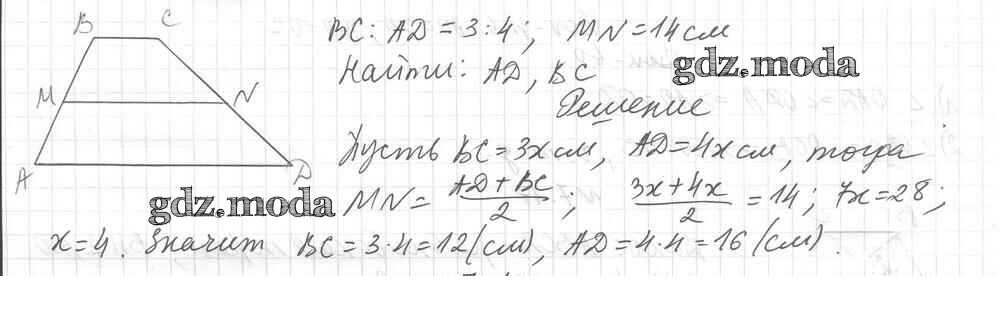 B C
BC : AD = 3 : 4 ; MN = 14 см
Найти: AD, BC
gdz.moda
Решение
M N
Пусть BC = 3x см, AD = 4x см, тогда
A D
gdz.moda
MN = (AD + BC)/2 ; (3x + 4x)/2 = 14 ; 7x = 28 ;
x = 4 . Значит BC = 3·4 = 12 (см), AD = 4·4 = 16 (см) .
gdz.moda